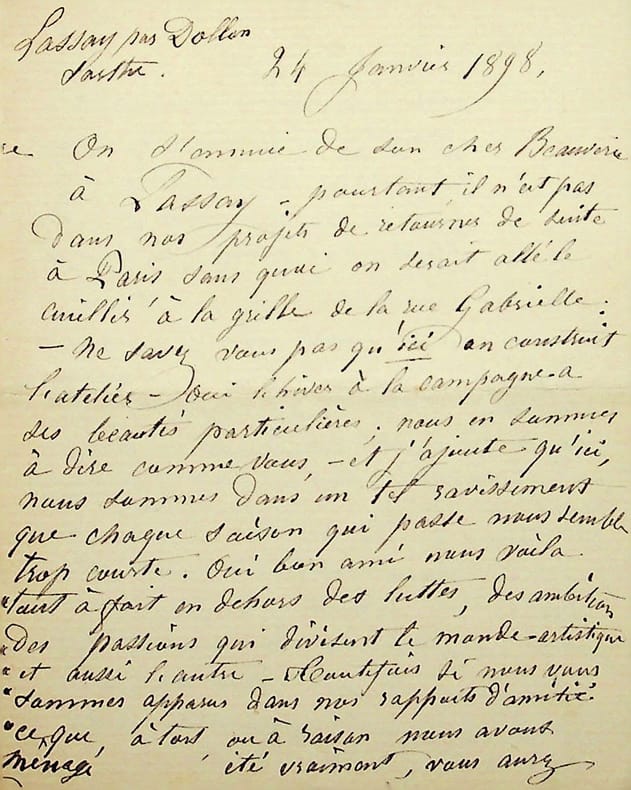 Lassay par Dollon
Sarthe.
24 Janvier 1898,
On s'ennuie de son cher Beauverie
à Lassay - pourtant il n'est pas
dans nos projets de retourner de suite
à Paris sans quoi on serait allé le
cueillir à la grille de la rue Gabrielle.
- Ne savez vous pas qu'ici on construit
l'atelier - Oui l'hiver à la campagne a
ses beautés particulières, nous en sommes
à dire comme vous, - et j'ajoute qu'ici,
nous sommes dans un tel ravissement
que chaque saison qui passe nous semble
trop courte. Oui bon ami nous voila
tout à fait en dehors des luttes, des ambitions
des passions qui divisent le monde-artistique
et aussi l'autre - Toutefois si nous vous
sommes apparus dans nos rapports d'amitié
ce que, à tort ou à raison nous avons
été vraiment, vous aurez
ménagé